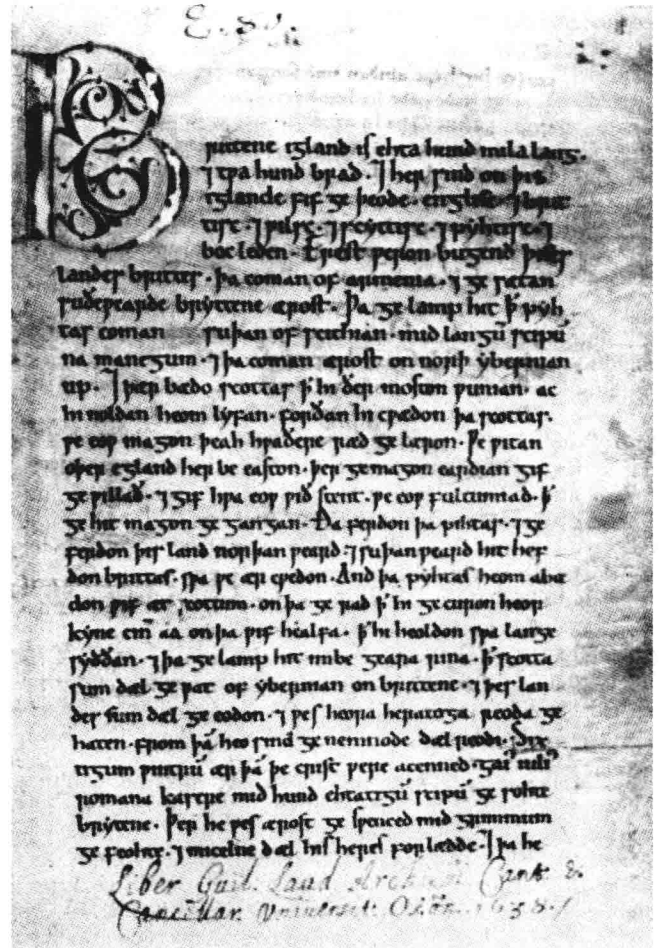 Brittene igland is ehta hund mila lang.
⁊ tƿa hund brad. ⁊ her sind on þis
iglande fif ge þeode. englisc. ⁊ brit
tisc. ⁊ ƿilsc. ⁊ scyttisc. ⁊ pyhtisc. ⁊
boc leden. Erest ƿeron bugend þises
landes brittes. þa coman of armenia. ⁊ ge sætan
suðeƿearde bryttene ærost. Þa ge lamp hit þ̄ pyh
tas coman suþan of scithian. mid langū scipū
na manegum. ⁊ þa coman ærost on norþ ybernian
up. ⁊ þær bædo scottas þ̄ hi ðer moston ƿunian. ac
hi noldan heom lyfan. forðan hi cƿædon þa scottas.
ƿe eoƿ magon þeah hƿaðere ræd ge læron. Ƿe ƿitan
oþer egland her be easton. þer ge magon eardian gif
ge ƿillað. ⁊ gif hƿa eoƿ ƿið stent. ƿe eoƿ fultumiað. þ̄
ge hit magon ge gangan. Ða ferdon þa pihtas. ⁊ ge
ferdon þis land norþan ƿeard. ⁊ suþan ƿeard hit hef
don brittas. sƿa ƿe ær cƿedon. And þa pyhtas heom abæ
don ƿif æt scottum. on þa ge rad þ̄ hi ge curon heor
kyne cīn aa on þa ƿif healfa. þ̄ hi heoldon sƿa lange
syððan. ⁊ þa ge lamp hit imbe geara rina. þ̄ scotta
sum dæl ge ƿat of ybernian on brittene. ⁊ þes lan
des sum dæl ge eodon. ⁊ ƿes heora heratoga reoda ge
haten. from þā heo sind ge nemnode dæl reodi. Six
tigum ƿintrū ær þā þe crist ƿere acenned. gaiꝰ iuliꝰ
romana kasere mid hund ehtatigū scipū ge sohte
brytene. Þer he ƿes ærost ge sƿenced mid grimmum
ge feohte. ⁊ micelne dæl his heres forlædde. ⁊ þa he
Liber Guil. Laud Archiepī Cant. &
Cancellar. Universit. Oxon. 1638.